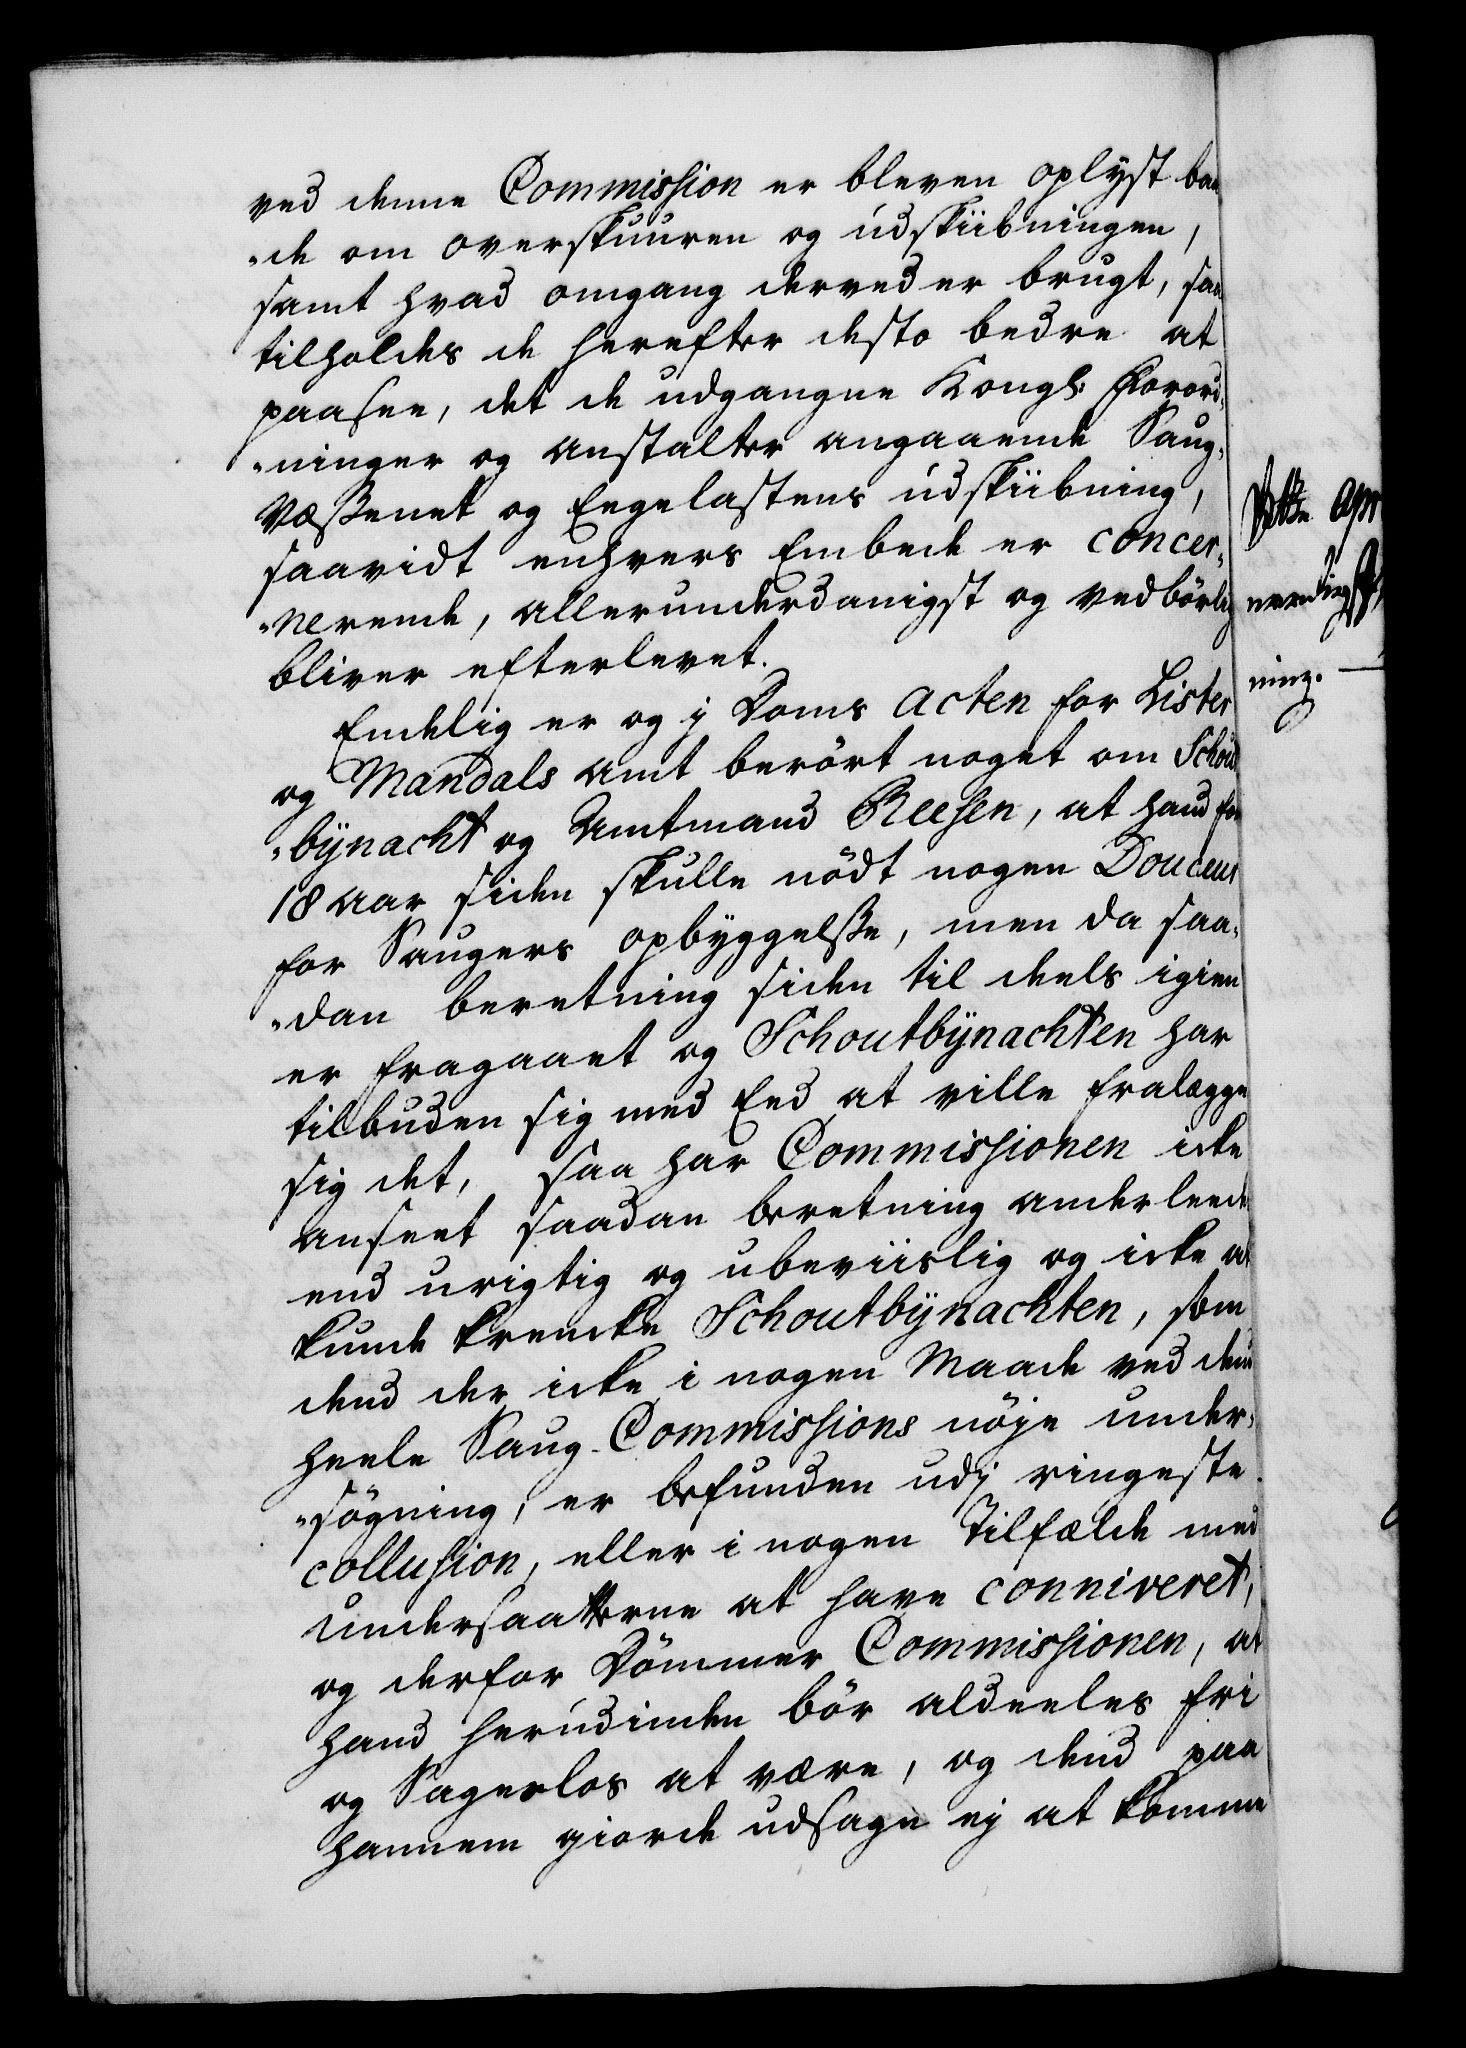 ved denne Commission er bleven oplyst baa
"de om overskuuren og udskiibningen,
samt hvad omgang derved er brugt, saa
tilholdes de herefter desto bedre at
paasee, det de udgangne Kongl: Forord,
"ninger og anstalter angaaende Saug,
Væssenet og Eegelastens udskiibning,
saavidt enhvers Embede er concer,
"nerende, allerunderdanigst og vedbörlig
bliver efterlevet.
Endelig er og j Doms Acten for Lister
og Mandals amt berört noget om Schout
"bÿnacht og Amtmand Reesen, at hand for
18 aar siden skulle nödt nogen Douceur
for Saugers opbyggelsse, men da saa,
"dan beretning siden til deels igien
er fragaaet og Schoutbÿnachten har
tilbuden sig med Eed at ville fralægge
sig det, saa har Commissionen icke
anseet saadan beretning anderleedes
end urigtig og ubeviislig og icke at
kunde krencke Schoutbÿnachten, som
dend der icke i nogen Maade ved dend
heele Saug-Commissions nöje under,
"sögning, er befunden udj ringeste
collusion, eller i nogen Tilfælde med
undersaatterne at have conniveret,
og derfor Dömmer Commissionen, at
hand herudinden bör aldeeles fri
og Sagerlos at være, og dend paa
hannem giorde udsagn ej at komme
Dette Apr
ning.